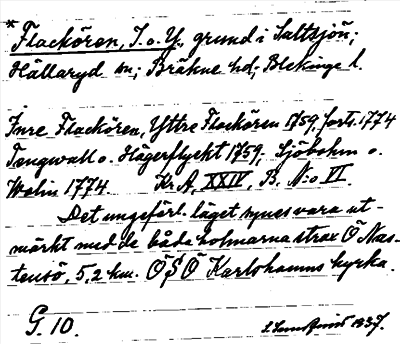 * Flackören, I. o. Y., grund i Saltsjön;
Hällaryd sn; Bräkne hd; Blekinge l.
Inre Flackören, Yttre Flackören 1759, forts. 1774
Tengwall o. Hägerflycht 1759; Sjöbohm o.
Wolin 1774 Kr.A, XXIV, B. N:o VI.
Det ungefärl. läget synes vara ut-
märkt med de båda holmarna strax Ö Nas-
tensö, 5,2 km. ÖSÖ Karlshamns kyrka.
G. 10. 1937.